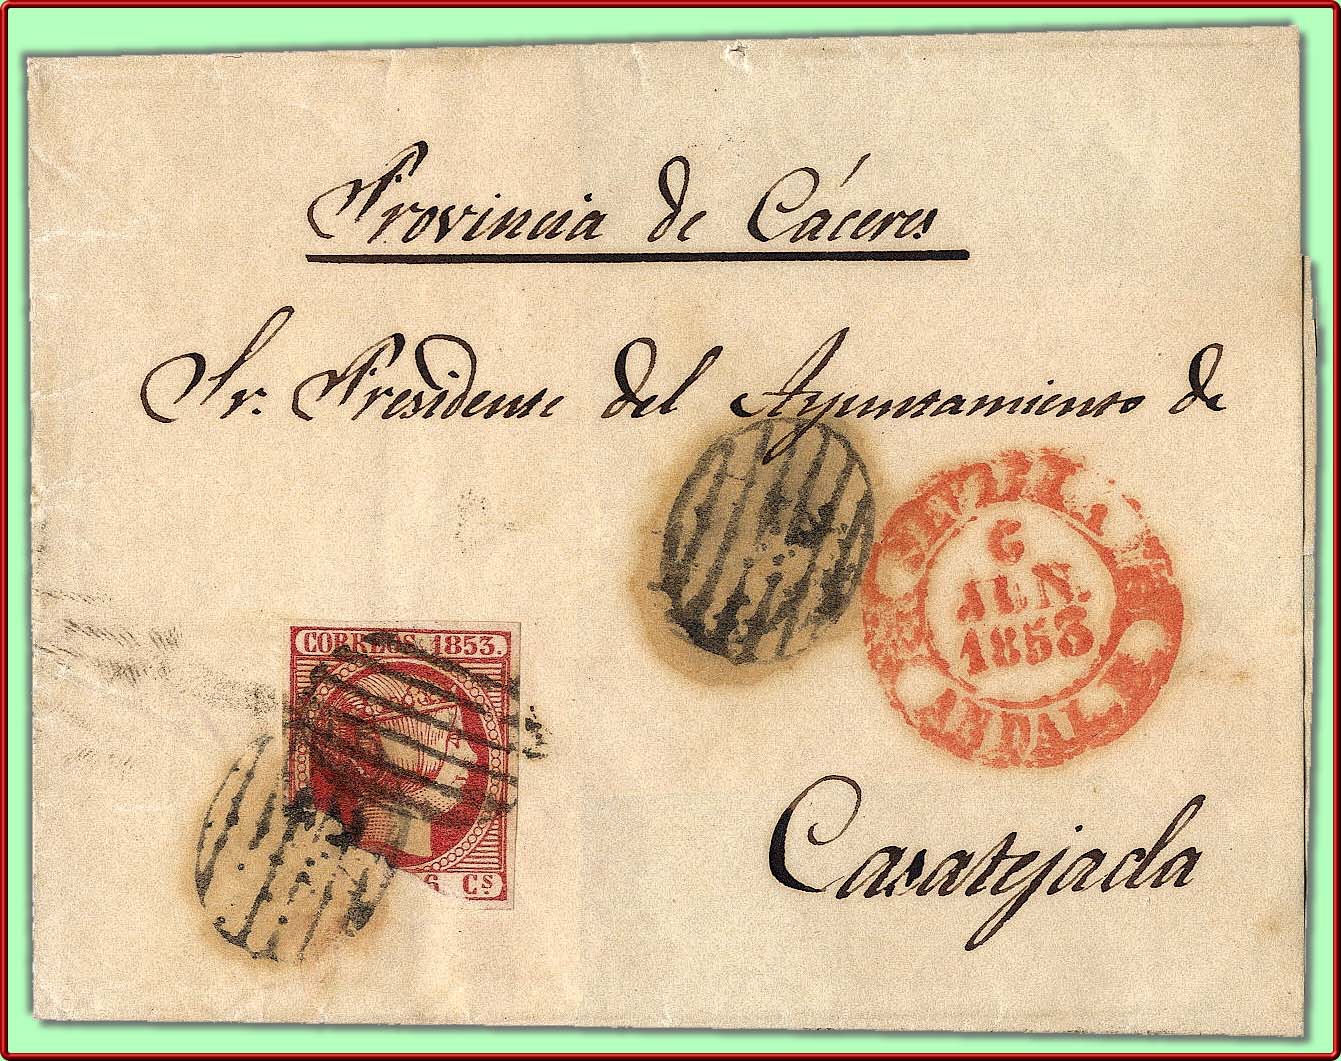 Provincia de Cáceres
Sr. Presidente del Ayuntamiento de
SEVILLA
6
JUN.
1853
ANDAL.
CORREOS 1853.
6 Cs
Casatejada